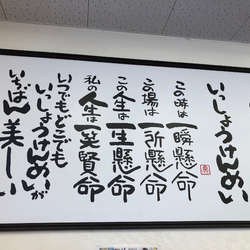 いっしょうけんめい
この時は一瞬懸命
この場は一所懸命
この生は一生懸命
私の人生は一笑賢命
いつでもどこでも
いっしょうけんめいが
いちばん美しい